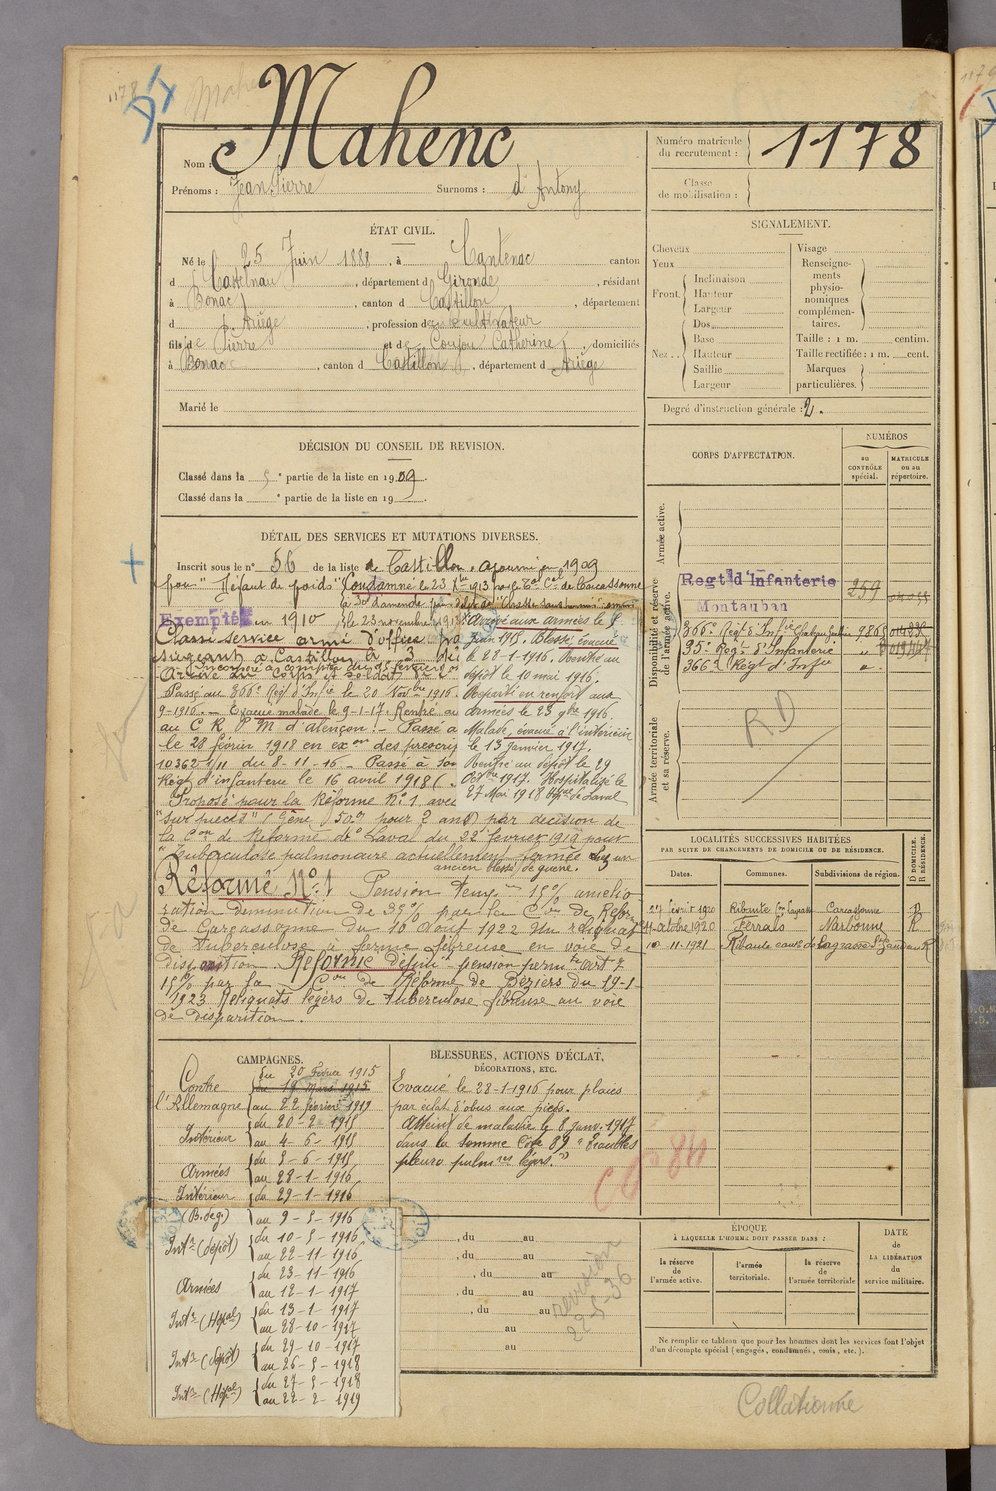 1178
Mahenc
Nom : Mahenc
Numéro matricule
du recrutement : 1178
Prénoms : Jean Pierre Surnoms : d'Antony
Classe
de mobilisation :
ÉTAT CIVIL.
Né le 25 Juin 1888, à Cantenac canton
d Castelnau, département d Gironde, résidant
à Bonac, canton d Castillon, département
d Ariège, profession de cultivateur
fils de Pierre et de Coujou Catherine, domiciliés
à Bonac, canton d Castillon, département d Ariège
Marié le
SIGNALEMENT.
Cheveux
Yeux
Front Inclinaison
Hauteur
Largeur
Nez Dos
Base
Hauteur
Saillie
Largeur
Visage
Renseigne-
ments
physio-
nomiques
complémen-
taires.
Taille : 1 m. centim.
Taille rectifiée : 1 m. cent.
Marques
particulières.
Degré d'instruction générale : 2.
DÉCISION DU CONSEIL DE REVISION.
Classé dans la 5e partie de la liste en 1909.
Classé dans la e partie de la liste en 19
CORPS D'AFFECTATION.
NUMÉROS
au
CONTRÔLE
spécial.
MATRICULE
ou au
répertoire.
Armée active.
Disponibilité et réserve
de l'armée active.
Armée territoriale
et sa réserve.
Regt d'Infanterie 259
Montauban
366e Régt d'Infie
35e Regt d'Infanterie "
366e Régt d'Infie "
RD
DÉTAIL DES SERVICES ET MUTATIONS DIVERSES.
Inscrit sous le n° 56 de la liste de Castillon. ajourné en 1909
pour "Défaut de poids" Condamné le 23 1913 par le Tal Cel de Carcassonne
Exempté en 1910 le 23 novembre 1913
Classé service armé d'office
siégeant à Castillon le 3
Incorporé à compter du
Arrivé au corps et soldat de 2
Passé au 366e Régt d'Infie le 20 Novbre 1916.
9-1916. – Evacué malade le 9-1-17. Rentré au
au C R P M d'alençon. – Passé a
le 28 février 1918 en exon des prescrip
10362 1/11 du 8-11-16 – Passé à son
Régt d'infanterie le 16 avril 1918
Proposé pour la Réforme N° 1 avec
Arrivé aux armées le 5
juin 1915. Blessé, évacué
le 28-1-1916. Rentré au
dépôt le 10 mai 1916.
Reparti en renfort aux
armées le 23 9bre 1916.
Malade, évacué à l'intérieur
le 13 Janvier 1917.
Rentré au dépôt le 29
Octbre 1917. Hospitalisé le
27 Mai 1918 de Laval
pour 2 ans) par décision de
la Con de Réforme de Laval du 22 février 1919 pour
"Tuberculose pulmonaire actuellement fermée chez un
ancien blessé de guerre.
Réformé N° 1 Pension Tempre 15% amélio
ration diminution de 35% par la Con de Réforme
de Carcassonne du 10 Aout 1922 Un reliquat
de Tuberculose à forme fibreuse en voie de
disparition. Réformé Définitt pension permte art 7
15% par la Con de Réforme de Béziers du 19-1-
1923 Reliquats légers de Tuberculose fibreuse en voie
de disparition.
LOCALITÉS SUCCESSIVES HABITÉES
PAR SUITE DE CHANGEMENTS DE DOMICILE OU DE RÉSIDENCE.
Dates. Communes. Subdivisions de région. D DOMICILE. R RÉSIDENCE.
27 février 1920 Ribaute Con Lagrasse Carcassonne D
4 octobre 1920 Ferrals Narbonne R
10 11-1921 Ribaute cant de Lagrasse R
CAMPAGNES.
Contre
l'Allemagne du 20 Février 1915
du 19 Mars 1915
au 22 février 1919
Intérieur du 20-2-1915
au 4-6-1915
Armées du 5-6-1915
au 28-1-1916
Intérieur du 29-1-1916
(Bl. deg) au 9-5-1916
Intr (dépôt) du 10-5-1916
au 22-11-1916
Armées du 23-11-1916
au 12-1-1917
Intr (Hôpal) du 13-1-1917
au 28-10-1917
Intr (dépôt) du 29-10-1917
au 26-5-1918
Intr (Hôpal) du 27-5-1918
au 22-2-1919
BLESSURES, ACTIONS D'ÉCLAT,
DÉCORATIONS, ETC.
Evacué le 28-1-1916 pour plaies
par éclat d'obus aux pieds.
Atteint de maladie le 8 janv. 1917
dans la Somme Côte 89 "Troubles
pleuro pulmres légers."
, du au
, du au
, du au
, du au
, du au
au
au
revision
22-5-36
ÉPOQUE
À LAQUELLE L'HOMME DOIT PASSER DANS :
la réserve
de
l'armée active.
l'armée
territoriale.
la réserve
de
l'armée territoriale
DATE
de
LA LIBÉRATION
du
service militaire.
Ne remplir ce tableau que pour les hommes dont les services font l'objet
d'un décompte spécial (engagés, condamnés, omis, etc.).
Collationné